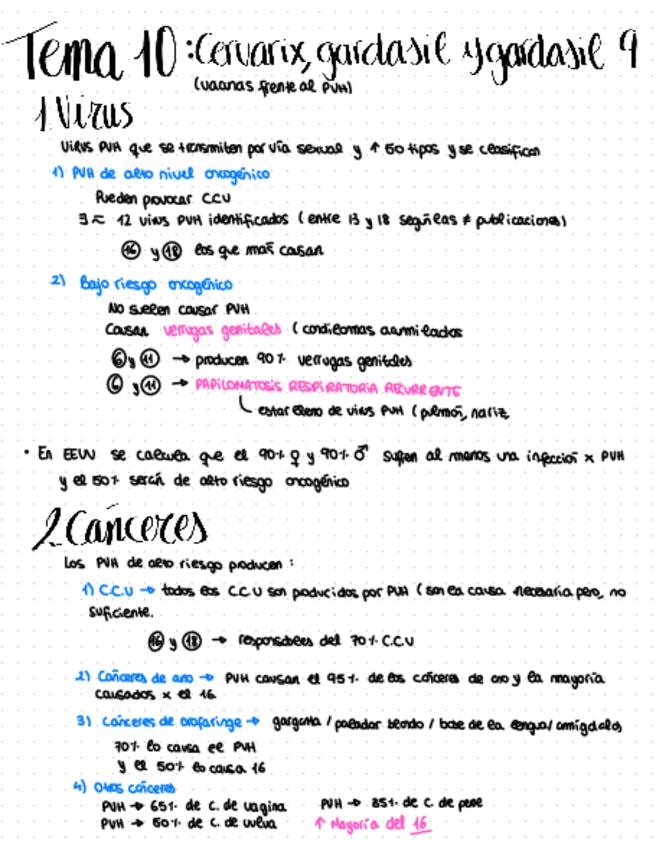 Tema 10: Cervarix, gardasil y gardasil 9
(vacunas frente al PVH)
1 Virus
Virus PVH que se transmiten por vía sexual y ↑ 50 tipos y se clasifican
1) PVH de alto nivel oncogénico
Pueden provocar CCU
∃ ≈ 12 virus PVH identificados (entre 13 y 18 según las ≠ publicaciones)
16 y 18 los que más causan
2) Bajo riesgo oncogénico
No suelen causar PVH
Causan verrugas genitales (condilomas acumilados
6 y 11 → producen 90% verrugas genitales
6 y 11 → PAPILOMATOSIS RESPIRATORIA RECURRENTE
estar lleno de virus PVH (pulmón, nariz
• En EEUU se calcula que el 90% ♀ y 90% ♂ sufren al menos una infección x PVH
y el 50% serán de alto riesgo oncogénico
2 Cánceres
Los PVH de alto riesgo producen:
1) C.C.U → todos los C.C.U son producidos por PVH (son la causa necesaria pero, no
suficiente.
16 y 18 → responsables del 70% C.C.U
2) Cánceres de ano → PVH causan el 95% de los cánceres de ano y la mayoría
causados x el 16.
3) Cánceres de orofaringe → garganta / paladar blando / base de la lengua / amígdalas
70% lo causa el PVH
y el 50% lo causa 16
4) Otros cánceres
PVH → 65% de C. de vagina PVH → 35% de C. de pene
PVH → 50% de C. de vulva ↑ Mayoría del 16